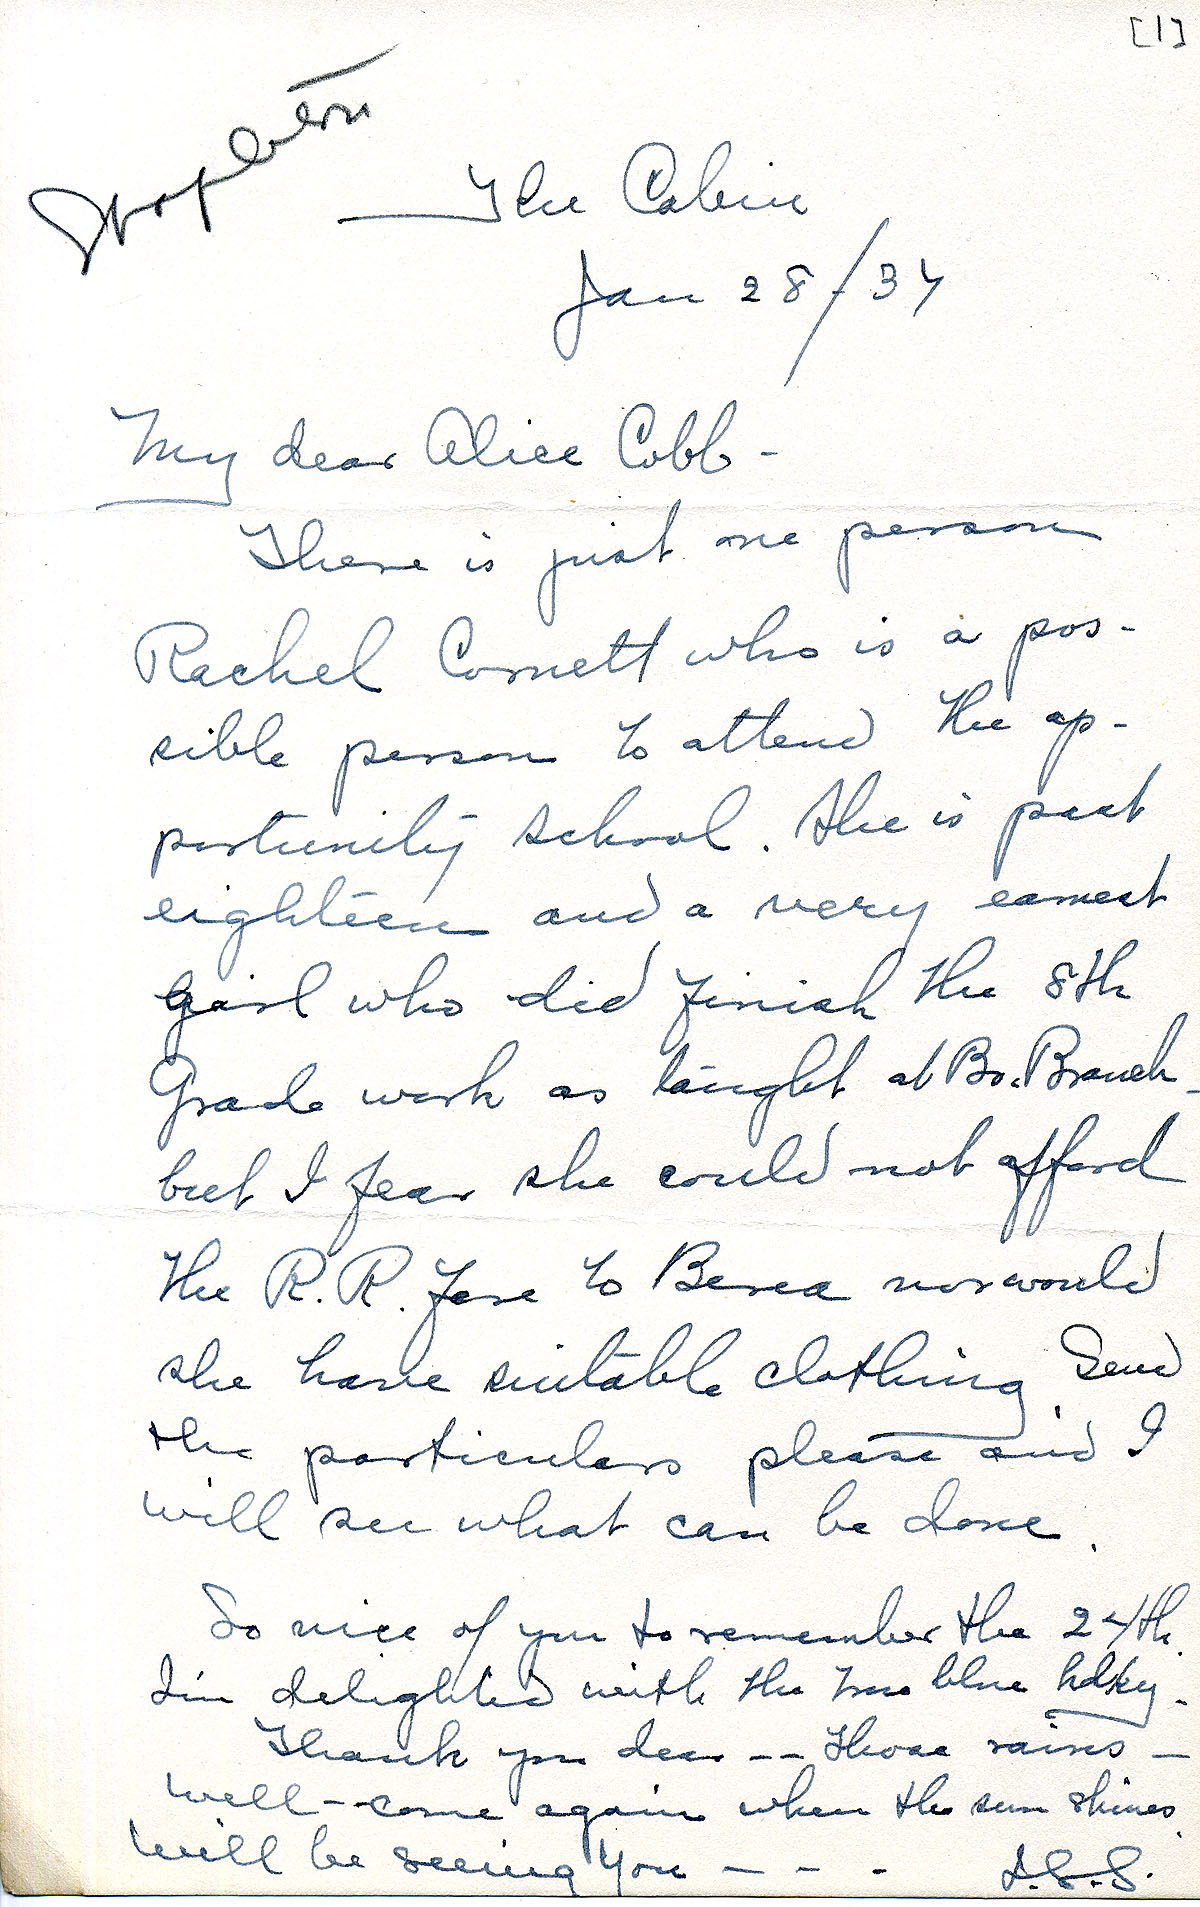 [1]
Stapleton
The Cabin
Jan 28/34
My dear Alice Cobb -
There is just one person
Rachel Cornett who is a pos-
sible person to attend the op-
portunity school. She is past
eighteen and a very earnest
girl who did finish the 8th
Grade work as taught at Bo. Branch -
but I fear she could not afford
the R.R. fare to Berea nor would
she have suitable clothing. Send
the particulars please and I
will see what can be done.
So nice of you to remember the 24th.
I'm delighted with the two blue hdky.
Thank you dear -- those rains -
well - come again when the sun shines.
Will be seeing you - - -
I.S.S.